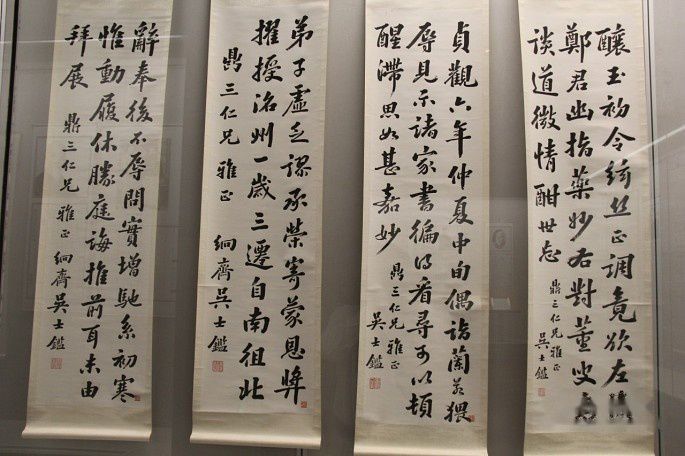 釀玉初令綺丝正調竟欲左
鄭君幽指藥妙右對董叟
談道微情酣世忘
鼎三仁兄雅正
吳士鑑
貞觀六年仲夏中旬偶詣蘭若猥
辱見示諸家書徧得看尋可以頓
醒滯思如甚嘉妙
鼎三仁兄雅正
吳士鑑
弟子虛乏謬承榮寄蒙恩獎
擢授洺州一歲三遷自南徂北
鼎三仁兄雅正
絅齋吳士鑑
辭奉後不辱問實增馳系初寒
惟動履休勝庭誨推前耳未由
拜展
鼎三仁兄雅正
絅齋吳士鑑